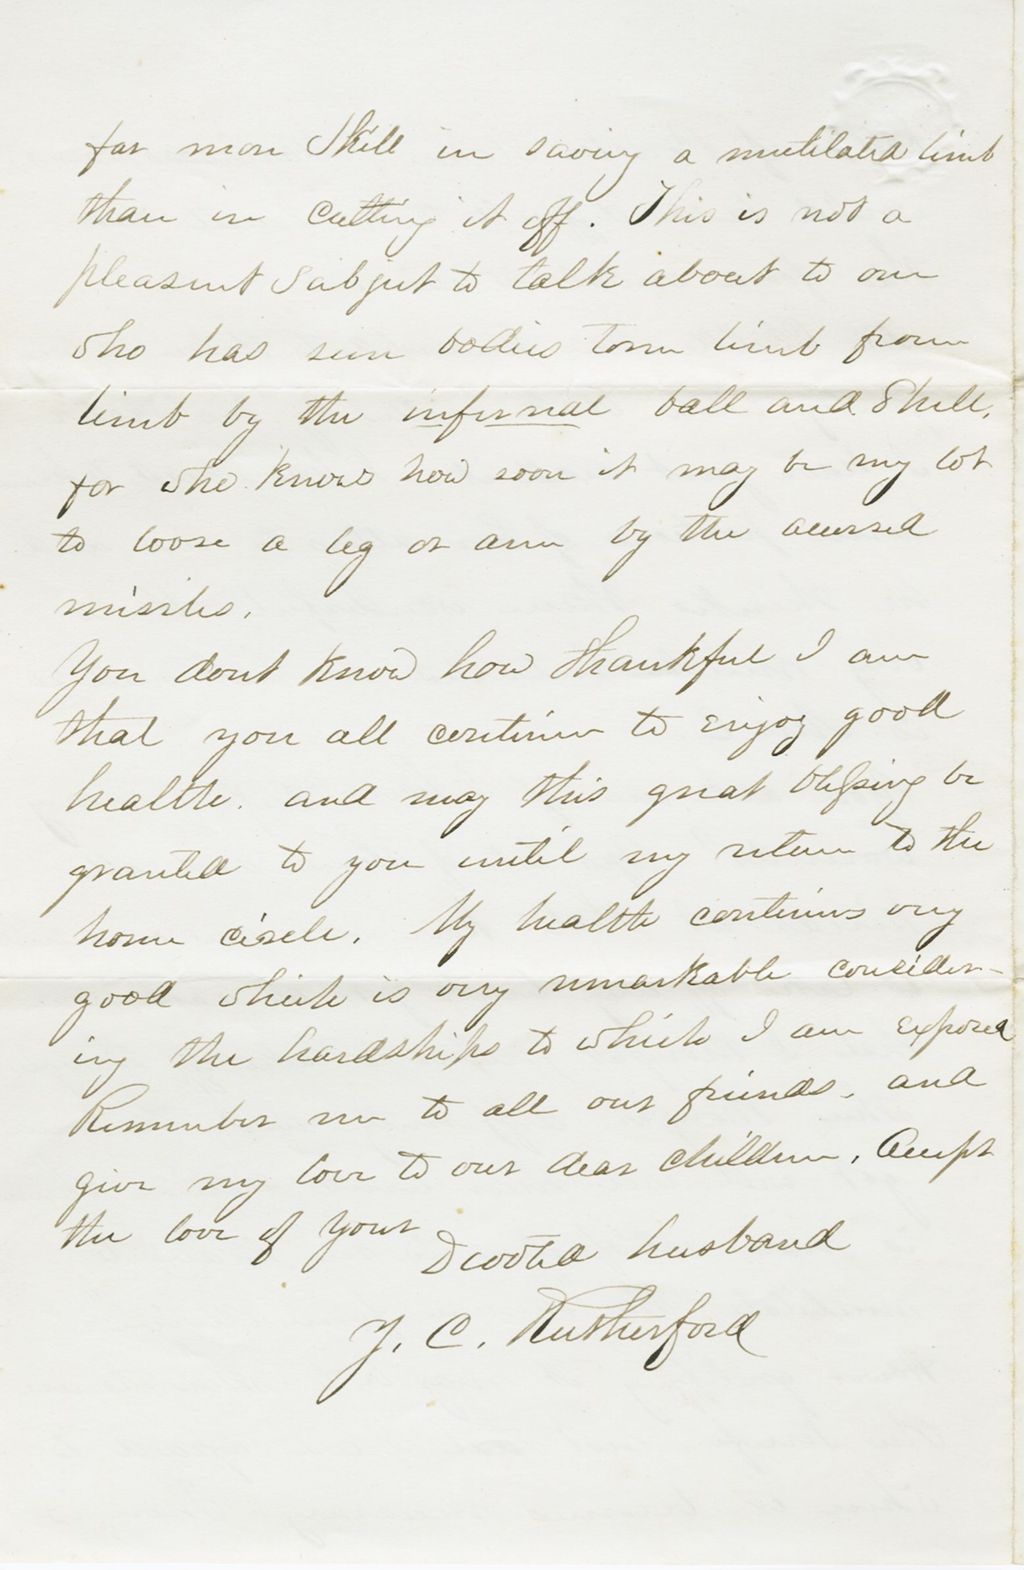 far more skill in saving a mutilated limb
than in cutting it off. This is not a
pleasent subject to talk about to one
who has seen bodies torn limb from
limb by the infernal ball and shell,
for who knows how soon it may be my lot
to loose a leg or arm by the acursed
missiles.
You dont know how thankful I am
that you all continue to enjoy good
health. and may this great blessing be
granted to you until my return to the
home circle. My health continues very
good which is very remarkable consider-
ing the hardships to which I am exposed
Remember me to all our friends. and
give my love to our dear children. Accept
the love of your
Devoted husband
J. C. Rutherford